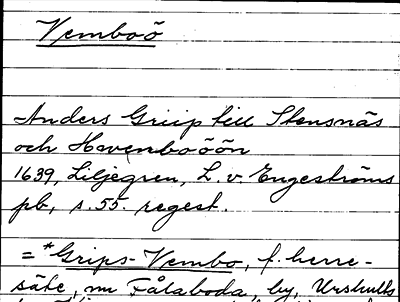 Vemboö
Anders Griip till Stensnäs
och Hwenbo öön
1639, Liljegren, L. v. Engeströms
pb, s. 55. regest.
= *Grips-Vembo, f. herre-
säte, nu Fålaboda, by, Urshults